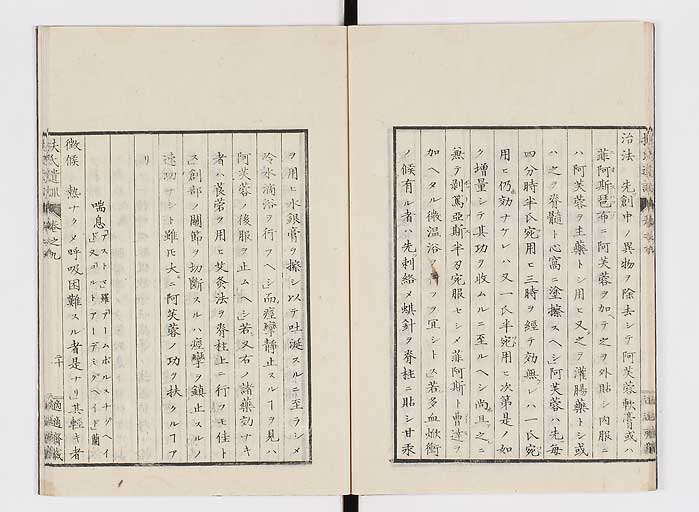 治法 先創中ノ異物ヲ除去シテ阿芙蓉軟膏或ハ
菲阿斯琶布ニ阿芙蓉ヲ加テ之ヲ外貼シ内服ニ
ハ阿芙蓉ヲ主藥トシ用ヒ又之ヲ灌腸藥トシ或
ハ之ヲ脊髓ト心窩ニ塗擦スヘシ阿芙蓉ハ先毎
四分時半氏宛用ヒ三時ヲ經テ効無レハ一氏宛
用ヒ仍効ナケレハ又一氏半宛用ヒ次第是ノ如
ク増量シテ其功ヲ收ムルニ至ルヘシ尚且之ニ
無テ剥篤亜斯半刄宛服セシメ菲阿斯ト曹達ヲ
加ヘタル微温浴ヲ行フヲ宜シトス若多血焮衝
ノ候有ル者ハ先刺絡メ蜞針ヲ脊柱ニ貼シ甘汞
ヲ用ヒ水銀膏ヲ擦シ以テ吐涎スルニ至ラシメ
冷水滴浴ヲ行フヘシ而痙攣静止スルヿヲ見ハ
阿芙蓉ノ後服ヲ止ムヘシ若又右ノ諸藥効ナキ
者ハ莨菪ヲ用ヒ艾灸法ヲ脊柱上ニ行フモ佳ト
ス創部ノ關節ヲ切断スルハ痙攣ヲ鎮止スルノ
速功ナシト雖𪜈大ニ阿芙蓉ノ功ヲ扶クルヿア
リ
喘息
徴候 熱ナクメ呼吸困難スル者是ナリ其輕キ者
扶氏遺訓 卷之九
二十
適適齋藏